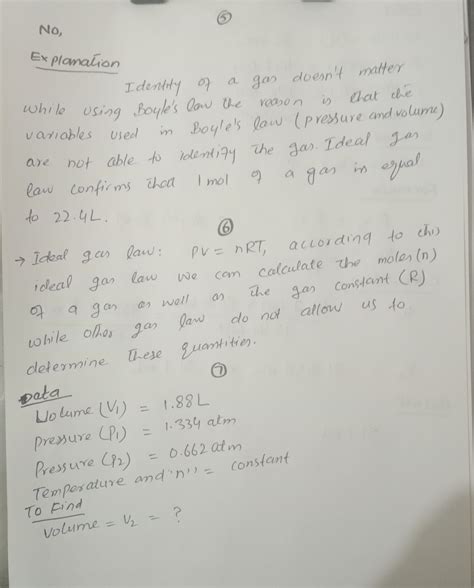 ⑤
No,
Explanation
Identity of a gas doesn't matter
while using Boyle's law the reason is that the
variables used in Boyle's law (pressure and volume)
are not able to identify the gas. Ideal gas
law confirms that 1 mol of a gas is equal
to 22.4L.
⑥
→ Ideal gas law: PV = nRT, according to this
ideal gas law we can calculate the moles (n)
of a gas as well as the gas constant (R)
while other gas law do not allow us to
determine these quantities.
⑦
Data
Volume (V1) = 1.88L
pressure (P1) = 1.334 atm
Pressure (P2) = 0.662 atm
Temperature and "n" = constant
To Find
Volume = V2 = ?